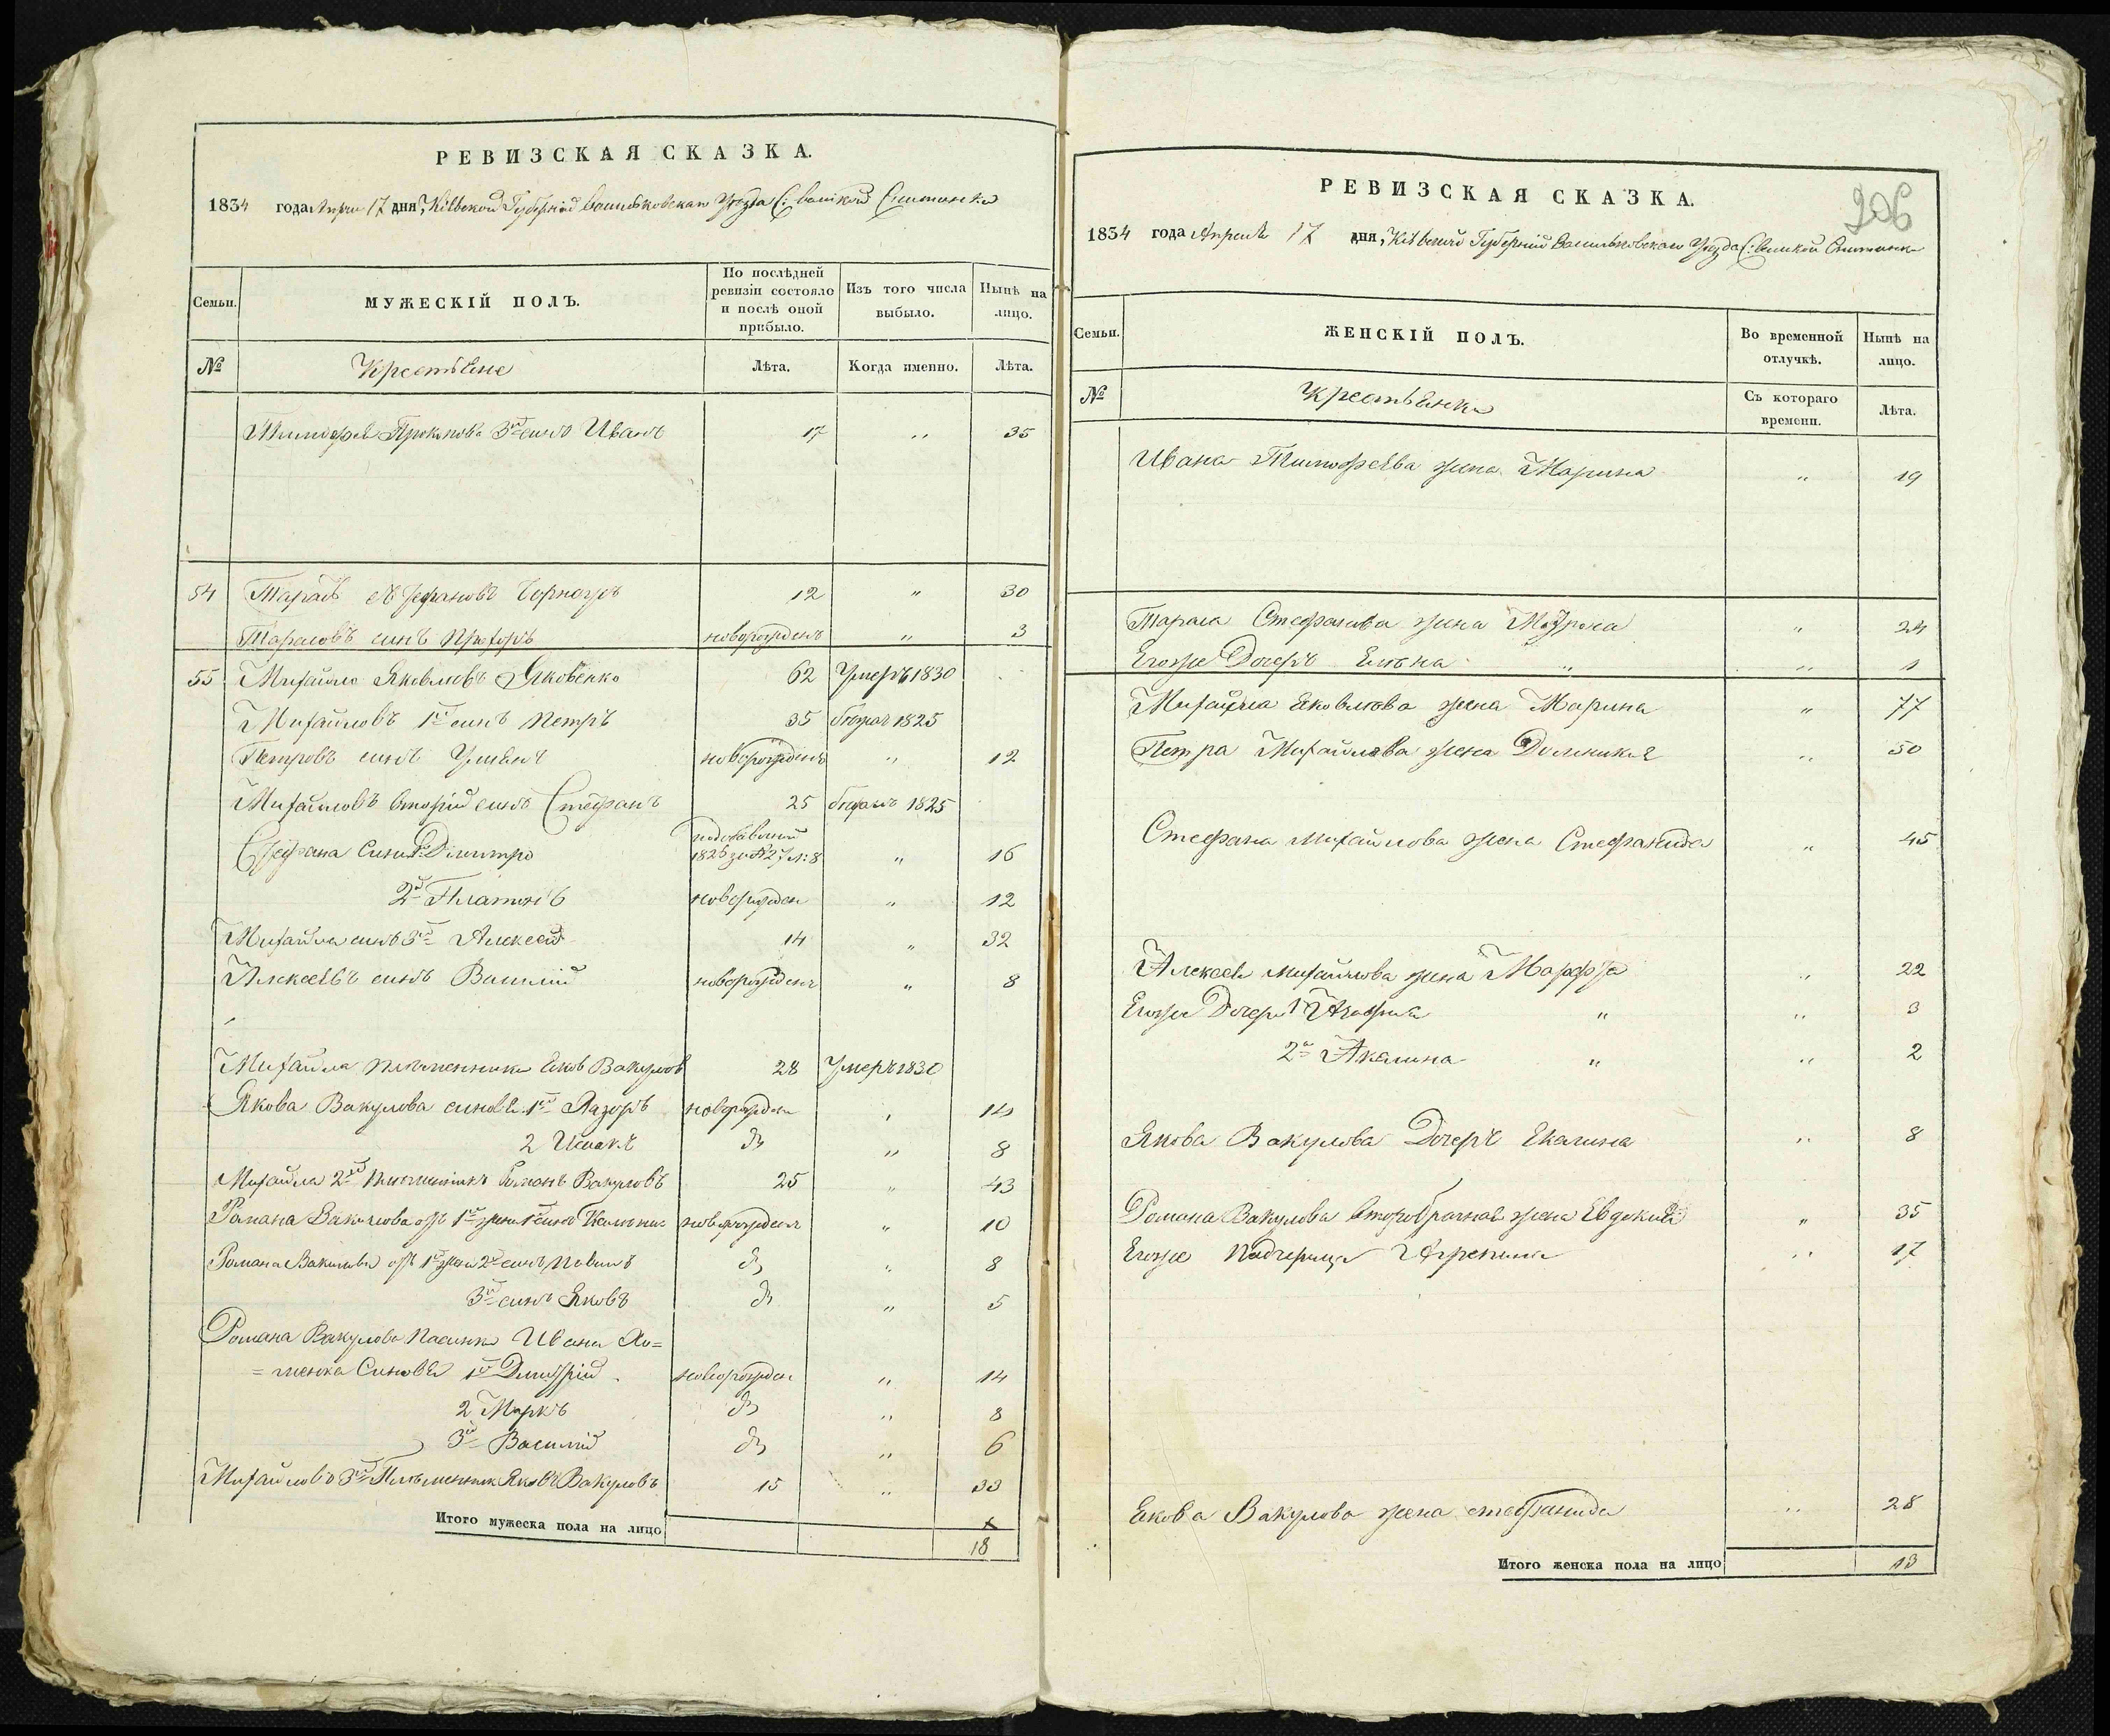 РЕВИЗСКАЯ СКАЗКА.
1834 года Апреля 17 дня, Кіевской Губерніи Васильковскаго Уезда С:
Семьи.
МУЖЕСКІЙ ПОЛЪ.
По послѣдней ревизіи состояло и послѣ оной прибыло.
Изъ того числа выбыло.
Нынѣ на лицо.
№
Крестьяне
Лѣта.
Когда именно.
Лѣта.
Тимофея Прокопова 3й сынъ Иванъ 17 " 35
54 Тарасъ 12 " 30
Тарасовъ сынъ новорожденъ " 3
55 Михайло Яковлювъ Яковенко 62 Умеръ 1830
Михайловъ 1й сынъ Петръ 35 бежал 1825
Петровъ сынъ новорожденъ " 12
Михайловъ вторій сынъ Стефанъ 25 бежалъ 1825
Стефана Дмитро 1826 " 16
2й Платонъ новорожден " 12
Михайла сынъ 3й Алексей 14 " 32
Алексеевъ сынъ Василій новорожденъ " 8
Михайла племенники Еков Вакулов 28 Умеръ 1830
Якова Вакулова синовя 1й Лазоръ новорожден " 14
2 Исаакъ " 8
Михайла 2й Романъ Вакуловъ 25 " 43
Романа Вакулова 1й новорожденъ " 10
Романа Вакулова 1й жены 2й сынъ " 8
3й сынъ Яковъ " 5
Романа Вакулова Пасинка Ивана
Синовя 1й Дмитрій новорожден " 14
2 Маркъ " 8
3й Василій " 6
Михайловъ 3й Племенник Яковъ Вакуловъ 15 " 33
Итого мужеска пола на лицо
18
206
РЕВИЗСКАЯ СКАЗКА.
1834 года Апреля 17 дня, Кіевской Губерніи Васильковскаго Уезда С:
Семьи.
ЖЕНСКІЙ ПОЛЪ.
Во временной отлучкѣ.
Нынѣ на лицо.
№
Крестьянки
Съ котораго времени.
Лѣта.
Ивана Тимофеева жена Марина " 19
Тараса Стефанова жена " 24
Егоже Дочерь " " 1
Михайла Яковлюва жена Марина " 77
Петра Михайлова жена Домникия " 50
Стефана Михайлова жена Стефанида " 45
Алексея Михайлова жена Марфа " 22
Егоже Дочери 1 " " 3
2а Акилина " " 2
Якова Вакулова Дочерь " 8
Романа Вакулова второбрачная жена Евдокия " 35
Егоже Падчерица Агрепина " 17
Екова Вакулова жена стефанида " 28
Итого женска пола на лицо 13